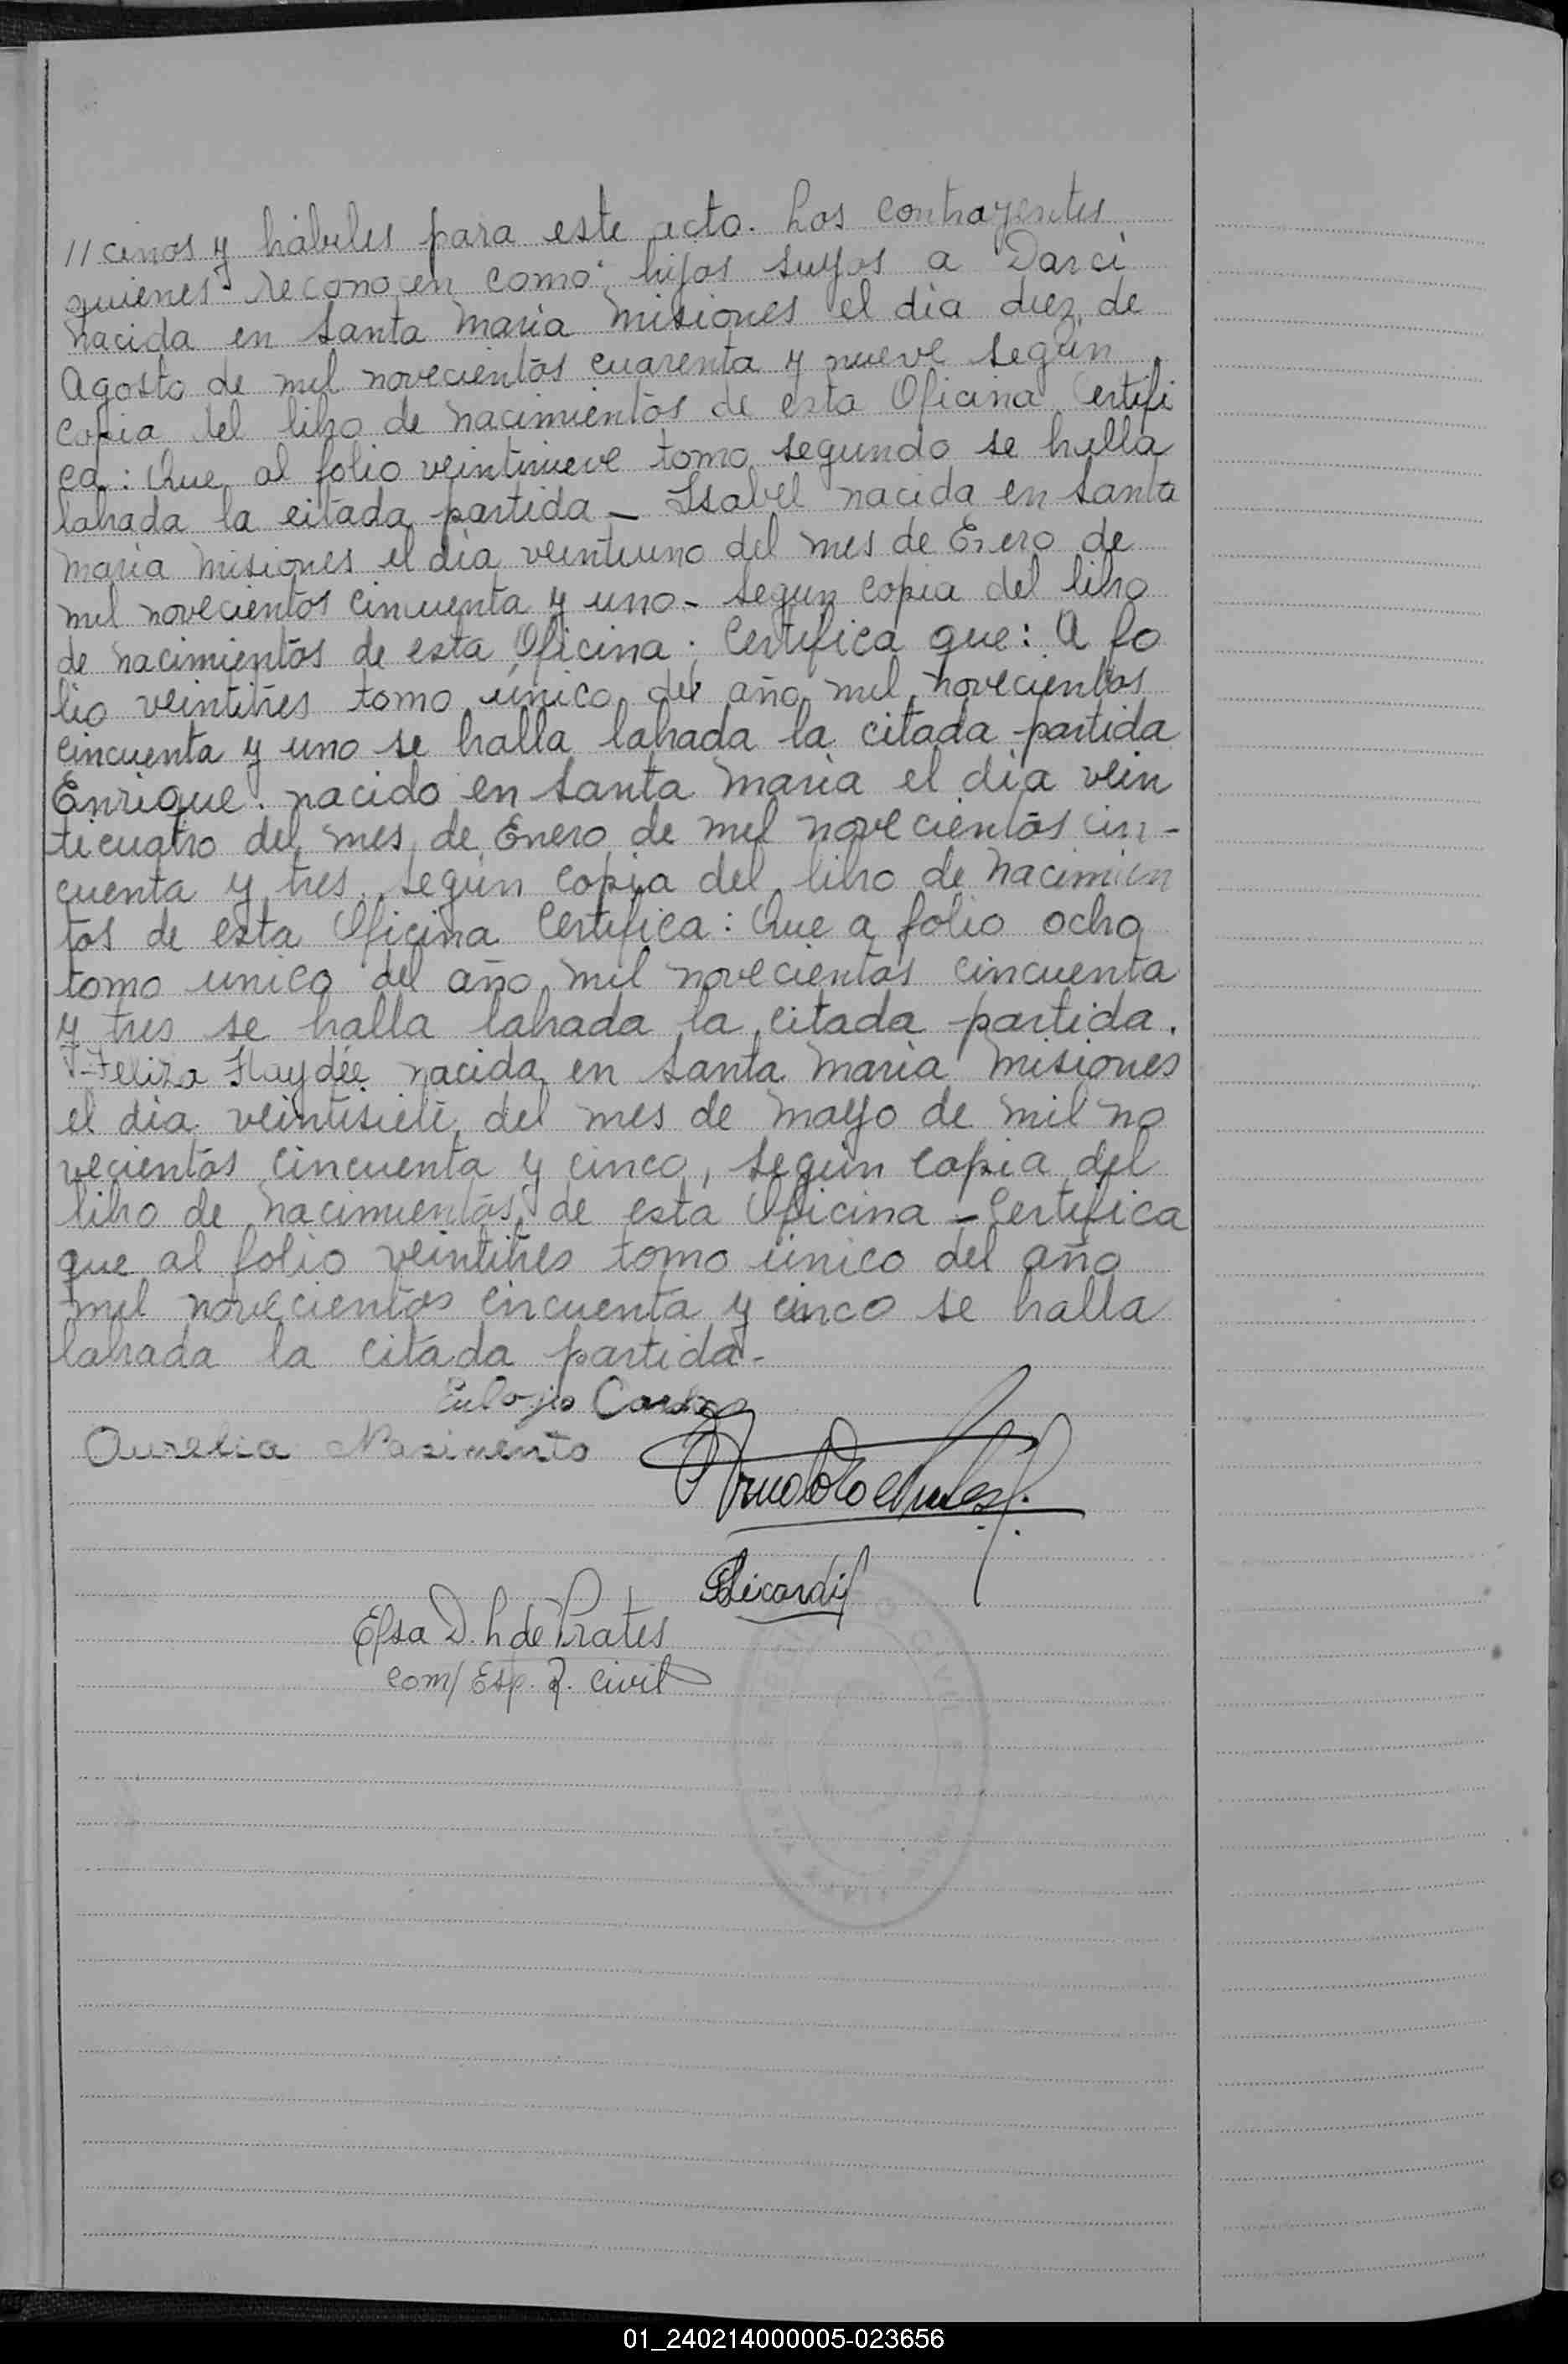 // cinos y hábiles para este acto. Los contrayentes
quienes reconocen como hijos suyos a Darci
nacida en Santa María Misiones el día diez de
Agosto de mil novecientos cuarenta y nueve según
copia del libro de nacimientos de esta Oficina Certifi
ca: Que al folio veintinueve tomo segundo se halla
labrada la citada partida - Isabel nacida en Santa
María Misiones el día veintiuno del mes de Enero de
mil novecientos cincuenta y uno - Según copia del libro
de nacimientos de esta Oficina; Certifica que: A fo
lio veintitres tomo único del año mil novecientos
cincuenta y uno se halla labrada la citada partida
Enrique. nacido en Santa María el día vein
ticuatro del mes de Enero de mil novecientos cin-
cuenta y tres. Según copia del libro de nacimien
tos de esta Oficina Certifica: Que a folio ocho
tomo unico del año mil novecientos cincuenta
y tres se halla labrada la citada partida.
Feliza Haydée nacida en Santa María Misiones
el día veintisiete del mes de Mayo de mil no
vecientos cincuenta y cinco, según copia del
libro de nacimientos de esta Oficina - Certifica
que al folio veintitres tomo único del año
mil novecientos cincuenta y cinco se halla
labrada la citada partida -
Eulojio
Aurelia Nasimento
Arnoldo
Elsa D. h de Prates
com/ Esp. R. Civil
01_240214000005-023656